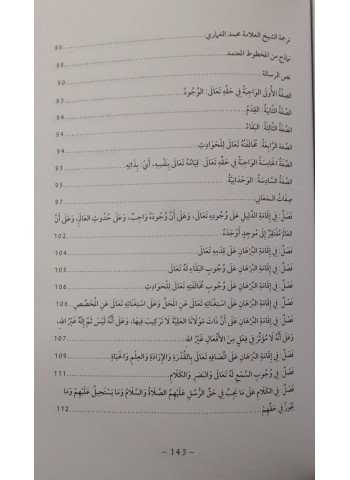 ترجمة الشيخ العلامة محمد الغياري ........ 86
نماذج من المخطوط المعتمد ........ 88
نص الرسالة ........ 90
الصِّفَةُ الأُولَى الوَاجِبَةُ فِي حَقِّهِ تَعَالَى: الوُجُودُ ........ 93
الصِّفَةُ الثَّانِيَةُ: القِدَمُ ........ 94
الصِّفَةُ الثَّالِثَةُ: البَقَاءُ ........ 94
الصِّفَةُ الرَّابِعَةُ: مُخَالَفَتُهُ تَعَالَى لِلْحَوَادِثِ ........ 94
الصِّفَةُ الخَامِسَةُ الوَاجِبَةُ فِي حَقِّهِ تَعَالَى: قِيَامُهُ تَعَالَى بِنَفْسِهِ، أَيْ: بِذَاتِهِ ........ 95
الصِّفَةُ السَّادِسَةُ: الوَحْدَانِيَّةُ ........ 95
صِفَاتُ المَعَانِي ........ 97
فَصْلٌ: فِي إِقَامَةِ الدَّلِيلِ عَلَى وُجُودِهِ تَعَالَى، وَعَلَى أَنَّ وُجُودَهُ وَاجِبٌ، وَعَلَى حُدُوثِ العَالَمِ، وَعَلَى أَنَّ
العَالَمَ مُفْتَقِرٌ إِلَى مُوجِدٍ أَوْجَدَهُ ........ 102
فَصْلٌ: فِي إِقَامَةِ البُرْهَانِ عَلَى قِدَمِهِ تَعَالَى ........ 104
فَصْلٌ: فِي إِقَامَةِ البُرْهَانِ عَلَى وُجُوبِ البَقَاءِ لَهُ تَعَالَى ........ 105
فَصْلٌ: فِي إِقَامَةِ البُرْهَانِ عَلَى وُجُوبِ مُخَالَفَتِهِ تَعَالَى لِلْحَوَادِثِ ........ 106
فَصْلٌ: فِي إِقَامَةِ البُرْهَانِ عَلَى اسْتِغْنَائِهِ تَعَالَى عَنِ المَحَلِّ وَعَلَى اسْتِغْنَائِهِ تَعَالَى عَنِ المُخَصِّصِ .. 106
فَصْلٌ: فِي إِقَامَةِ البُرْهَانِ عَلَى أَنَّ ذَاتَ مَوْلَانَا العَلِيَّةَ لَا تَرْكِيبَ فِيهَا، وَعَلَى أَنَّهُ لَيْسَ ثَمَّ إِلَهٌ غَيْرُ اللهِ،
وَعَلَى أَنَّهُ لَا مُؤَثِّرَ فِي فِعْلٍ مِنَ الأَفْعَالِ غَيْرُ اللهِ ........ 107
فَصْلٌ: فِي إِقَامَةِ البُرْهَانِ عَلَى اتِّصَافِهِ تَعَالَى بِالقُدْرَةِ وَالإِرَادَةِ وَالعِلْمِ وَالحَيَاةِ ........ 109
فَصْلٌ: فِي وُجُوبِ السَّمْعِ لَهُ تَعَالَى وَالبَصَرِ وَالكَلَامِ ........ 111
فَصْلٌ: فِي الكَلَامِ عَلَى مَا يَجِبُ فِي حَقِّ الرُّسُلِ عَلَيْهِمُ الصَّلَاةُ وَالسَّلَامُ وَمَا يَسْتَحِيلُ عَلَيْهِمْ وَمَا
يَجُوزُ فِي حَقِّهِمْ ........ 112
- 143 -